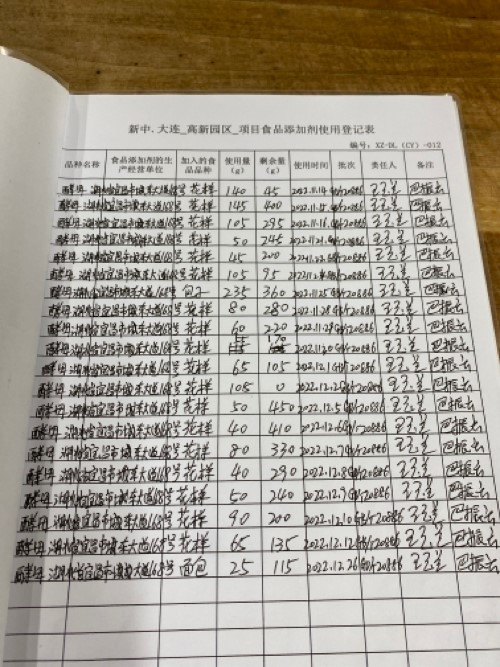 新中.大连_高新园区_项目食品添加剂使用登记表
编号：XZ-DL（CY）-012
品种名称 食品添加剂的生产经营单位 加入的食品品种 使用量(g) 剩余量(g) 使用时间 批次 责任人 备注
酵母 湖北省宜昌市城东大道168号 花样 140 45 2022.11.14 20886 巴振云
酵母 湖北省宜昌市城东大道168号 花样 145 400 2022.11.15 20886 巴振云
酵母 湖北省宜昌市城东大道168号 花样 105 295 2022.11.16 20886 巴振云
酵母 湖北省宜昌市城东大道168号 花样 50 245 2022.11.21 20886 巴振云
酵母 湖北省宜昌市城东大道168号 花样 45 200 2022.11.22 20886 巴振云
酵母 湖北省宜昌市城东大道168号 花样 105 95 20886 巴振云
酵母 湖北省宜昌市城东大道168号 包子 235 360 2022.11.25 20886 巴振云
酵母 湖北省宜昌市城东大道168号 花样 80 280 2022.11.28 20886 巴振云
酵母 湖北省宜昌市城东大道168号 花样 60 220 2022.11.29 20886 巴振云
酵母 湖北省宜昌市城东大道168号 花样 170 20886 巴振云
酵母 湖北省宜昌市城东大道168号 花样 65 105 2022.12.1 20886 巴振云
酵母 湖北省宜昌市城东大道168号 花样 105 0 2022.12.2 20886 巴振云
酵母 湖北省宜昌市城东大道168号 花样 50 450 2022.12.5 20886 巴振云
酵母 湖北省宜昌市城东大道168号 花样 40 410 2022.12.6 20886 巴振云
酵母 湖北省宜昌市城东大道168号 花样 80 330 2022.12.7 20886 巴振云
酵母 湖北省宜昌市城东大道168号 花样 40 290 2022.12.8 20886 巴振云
酵母 湖北省宜昌市城东大道168号 花样 50 240 2022.12.9 20886 巴振云
酵母 湖北省宜昌市城东大道168号 花样 90 200 2022.12.10 20886 巴振云
酵母 湖北省宜昌市城东大道168号 花样 65 135 2022.12.12 20886 巴振云
酵母 湖北省宜昌市城东大道168号 面包 25 115 2022.12.26 20886 巴振云